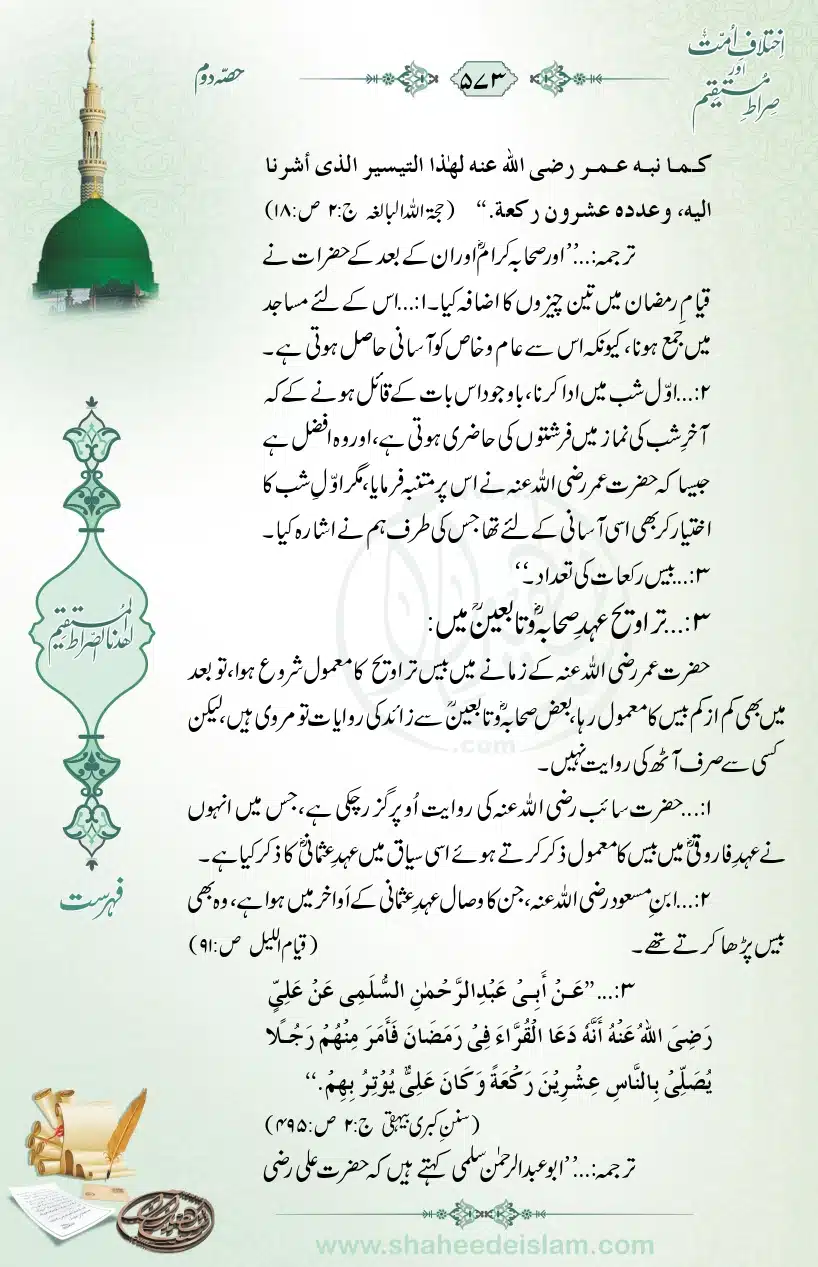 اِختلافِ اُمّت
اور
صراطِ مُستقیم
۵۷۳
حصّہ دوم
کـمـا نبـه عـمـر رضی الله عنه لهٰذا التیسیر الذی أشرنا
الیه، وعدده عشرون رکعة.“ (حجۃ اللہ البالغہ ج:۲ ص:۱۸)
ترجمہ:...’’اور صحابہ کرامؓ اور ان کے بعد کے حضرات نے
قیامِ رمضان میں تین چیزوں کا اضافہ کیا۔ ۱:...اس کے لئے مساجد
میں جمع ہونا، کیونکہ اس سے عام و خاص کو آسانی حاصل ہوتی ہے۔
۲:...اوّل شب میں ادا کرنا، باوجود اس بات کے قائل ہونے کے کہ
آخرِ شب کی نماز میں فرشتوں کی حاضری ہوتی ہے، اور وہ افضل ہے
جیسا کہ حضرت عمر رضی اللہ عنہ نے اس پر متنبہ فرمایا، مگر اوّلِ شب کا
اختیار کر بھی اسی آسانی کے لئے تھا جس کی طرف ہم نے اشارہ کیا۔
۳:...بیس رکعات کی تعداد۔‘‘
۳:...تراویح عہدِ صحابہؓ و تابعینؒ میں:
حضرت عمر رضی اللہ عنہ کے زمانے میں بیس تراویح کا معمول شروع ہوا، تو بعد
میں بھی کم از کم بیس کا معمول رہا، بعض صحابہؓ و تابعینؒ سے زائد کی روایات تو مروی ہیں، لیکن
کسی سے صرف آٹھ کی روایت نہیں۔
۱:...حضرت سائب رضی اللہ عنہ کی روایت اُوپر گزر چکی ہے، جس میں انہوں
نے عہدِ فاروقیؓ میں بیس کا معمول ذکر کرتے ہوئے اسی سیاق میں عہدِ عثمانیؓ کا ذکر کیا ہے۔
۲:...ابنِ مسعود رضی اللہ عنہ، جن کا وصال عہدِ عثمانی کے اَواخر میں ہوا ہے، وہ بھی
بیس پڑھا کرتے تھے۔ (قیام اللیل ص:۹۱)
۳:...”عَـنْ أَبِـیْ عَبْدِالرَّحْمٰنِ السُّلَمِی عَنْ عَلِیٍّ
رَضِیَ اللهُ عَنْهُ أَنَّهُ دَعَا الْقُرَّاءَ فِیْ رَمَضَانَ فَأَمَرَ مِنْهُمْ رَجُـلًا
یُصَلِّیْ بِالنَّاسِ عِشْرِیْنَ رَکْعَةً وَکَانَ عَلِیٌّ یُوْتِرُ بِهِمْ.‘‘
(سننِ کبریٰ بیہقی ج:۲ ص:۴۹۵)
ترجمہ:...’’ابو عبدالرحمٰن سلمی کہتے ہیں کہ حضرت علی رضی
اهدنا الصّراط المُستقیم
فہرست
.com
www.shaheedeislam.com